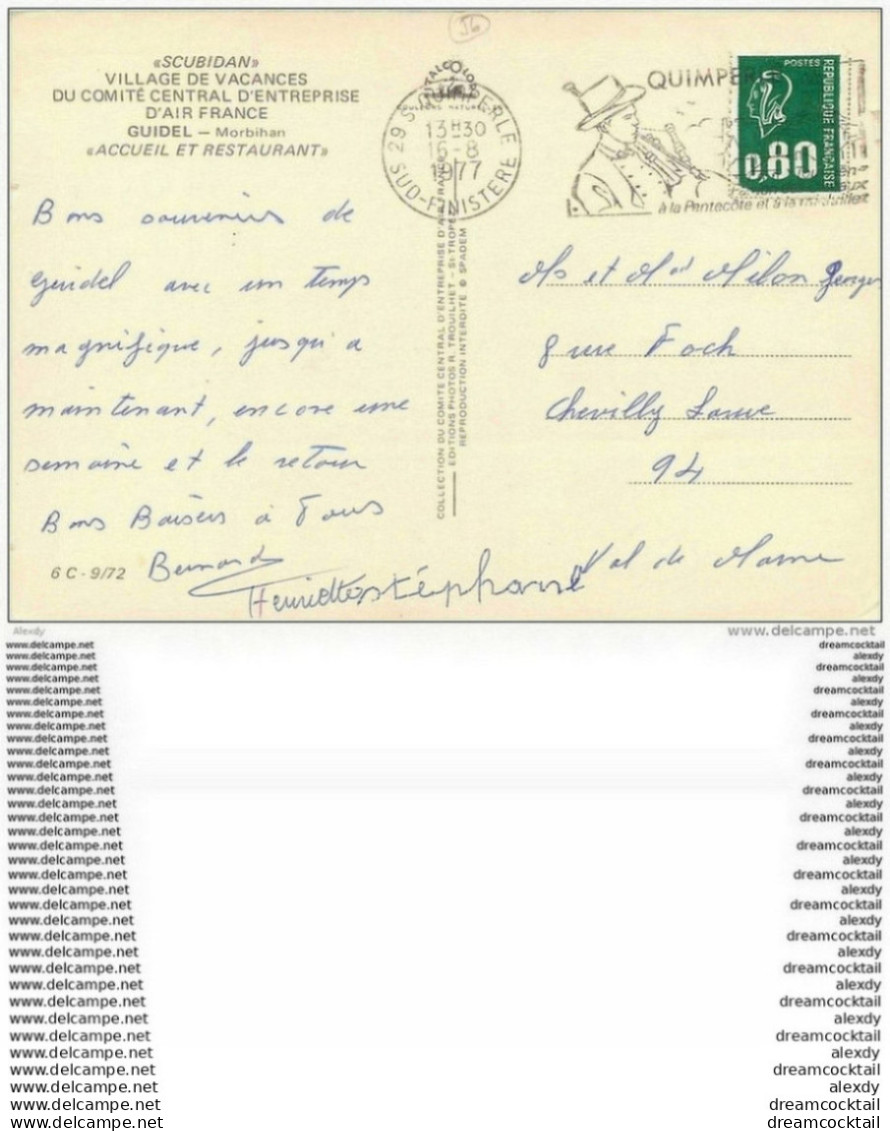 56
«SCUBIDAN»
VILLAGE DE VACANCES
DU COMITÉ CENTRAL D'ENTREPRISE
D'AIR FRANCE
GUIDEL – Morbihan
«ACCUEIL ET RESTAURANT»
29 S QUIMPERLE
13H30
16-8
1977
SUD-FINISTERE
QUIMPER
à la Pentecôte et à la
POSTES
REPUBLIQUE FRANÇAISE
0.80
Bons souvenirs de
Guidel avec un temps
magnifique, jusqu'a
maintenant, encore une
semaine et le retour
Bons Baisers à Tous
Bernard
Henriette
stéphane
6 C - 9/72
COLLECTION DU COMITE CENTRAL D'ENTREPRISE D'AIR FRANCE
EDITIONS PHOTOS R. TROUILHET - St-TROPE
REPRODUCTION INTERDITE © SPADEM
Mr et Mad Milon Georges
8 rue Foch
Chevilly Larue
94
Val de Marne
Alexdy
www.delcampe.net
www.delcampe.net dreamcocktail
www.delcampe.net alexdy
www.delcampe.net dreamcocktail
www.delcampe.net alexdy
www.delcampe.net dreamcocktail
www.delcampe.net alexdy
www.delcampe.net dreamcocktail
www.delcampe.net alexdy
www.delcampe.net dreamcocktail
www.delcampe.net alexdy
www.delcampe.net dreamcocktail
www.delcampe.net alexdy
www.delcampe.net dreamcocktail
www.delcampe.net alexdy
www.delcampe.net dreamcocktail
www.delcampe.net alexdy
www.delcampe.net dreamcocktail
www.delcampe.net alexdy
www.delcampe.net dreamcocktail
www.delcampe.net alexdy
www.delcampe.net dreamcocktail
www.delcampe.net alexdy
www.delcampe.net dreamcocktail
www.delcampe.net alexdy
www.delcampe.net dreamcocktail
www.delcampe.net alexdy
www.delcampe.net dreamcocktail
www.delcampe.net alexdy
www.delcampe.net dreamcocktail
www.delcampe.net alexdy
www.delcampe.net dreamcocktail
www.delcampe.net alexdy
www.delcampe.net dreamcocktail
www.delcampe.net dreamcocktail